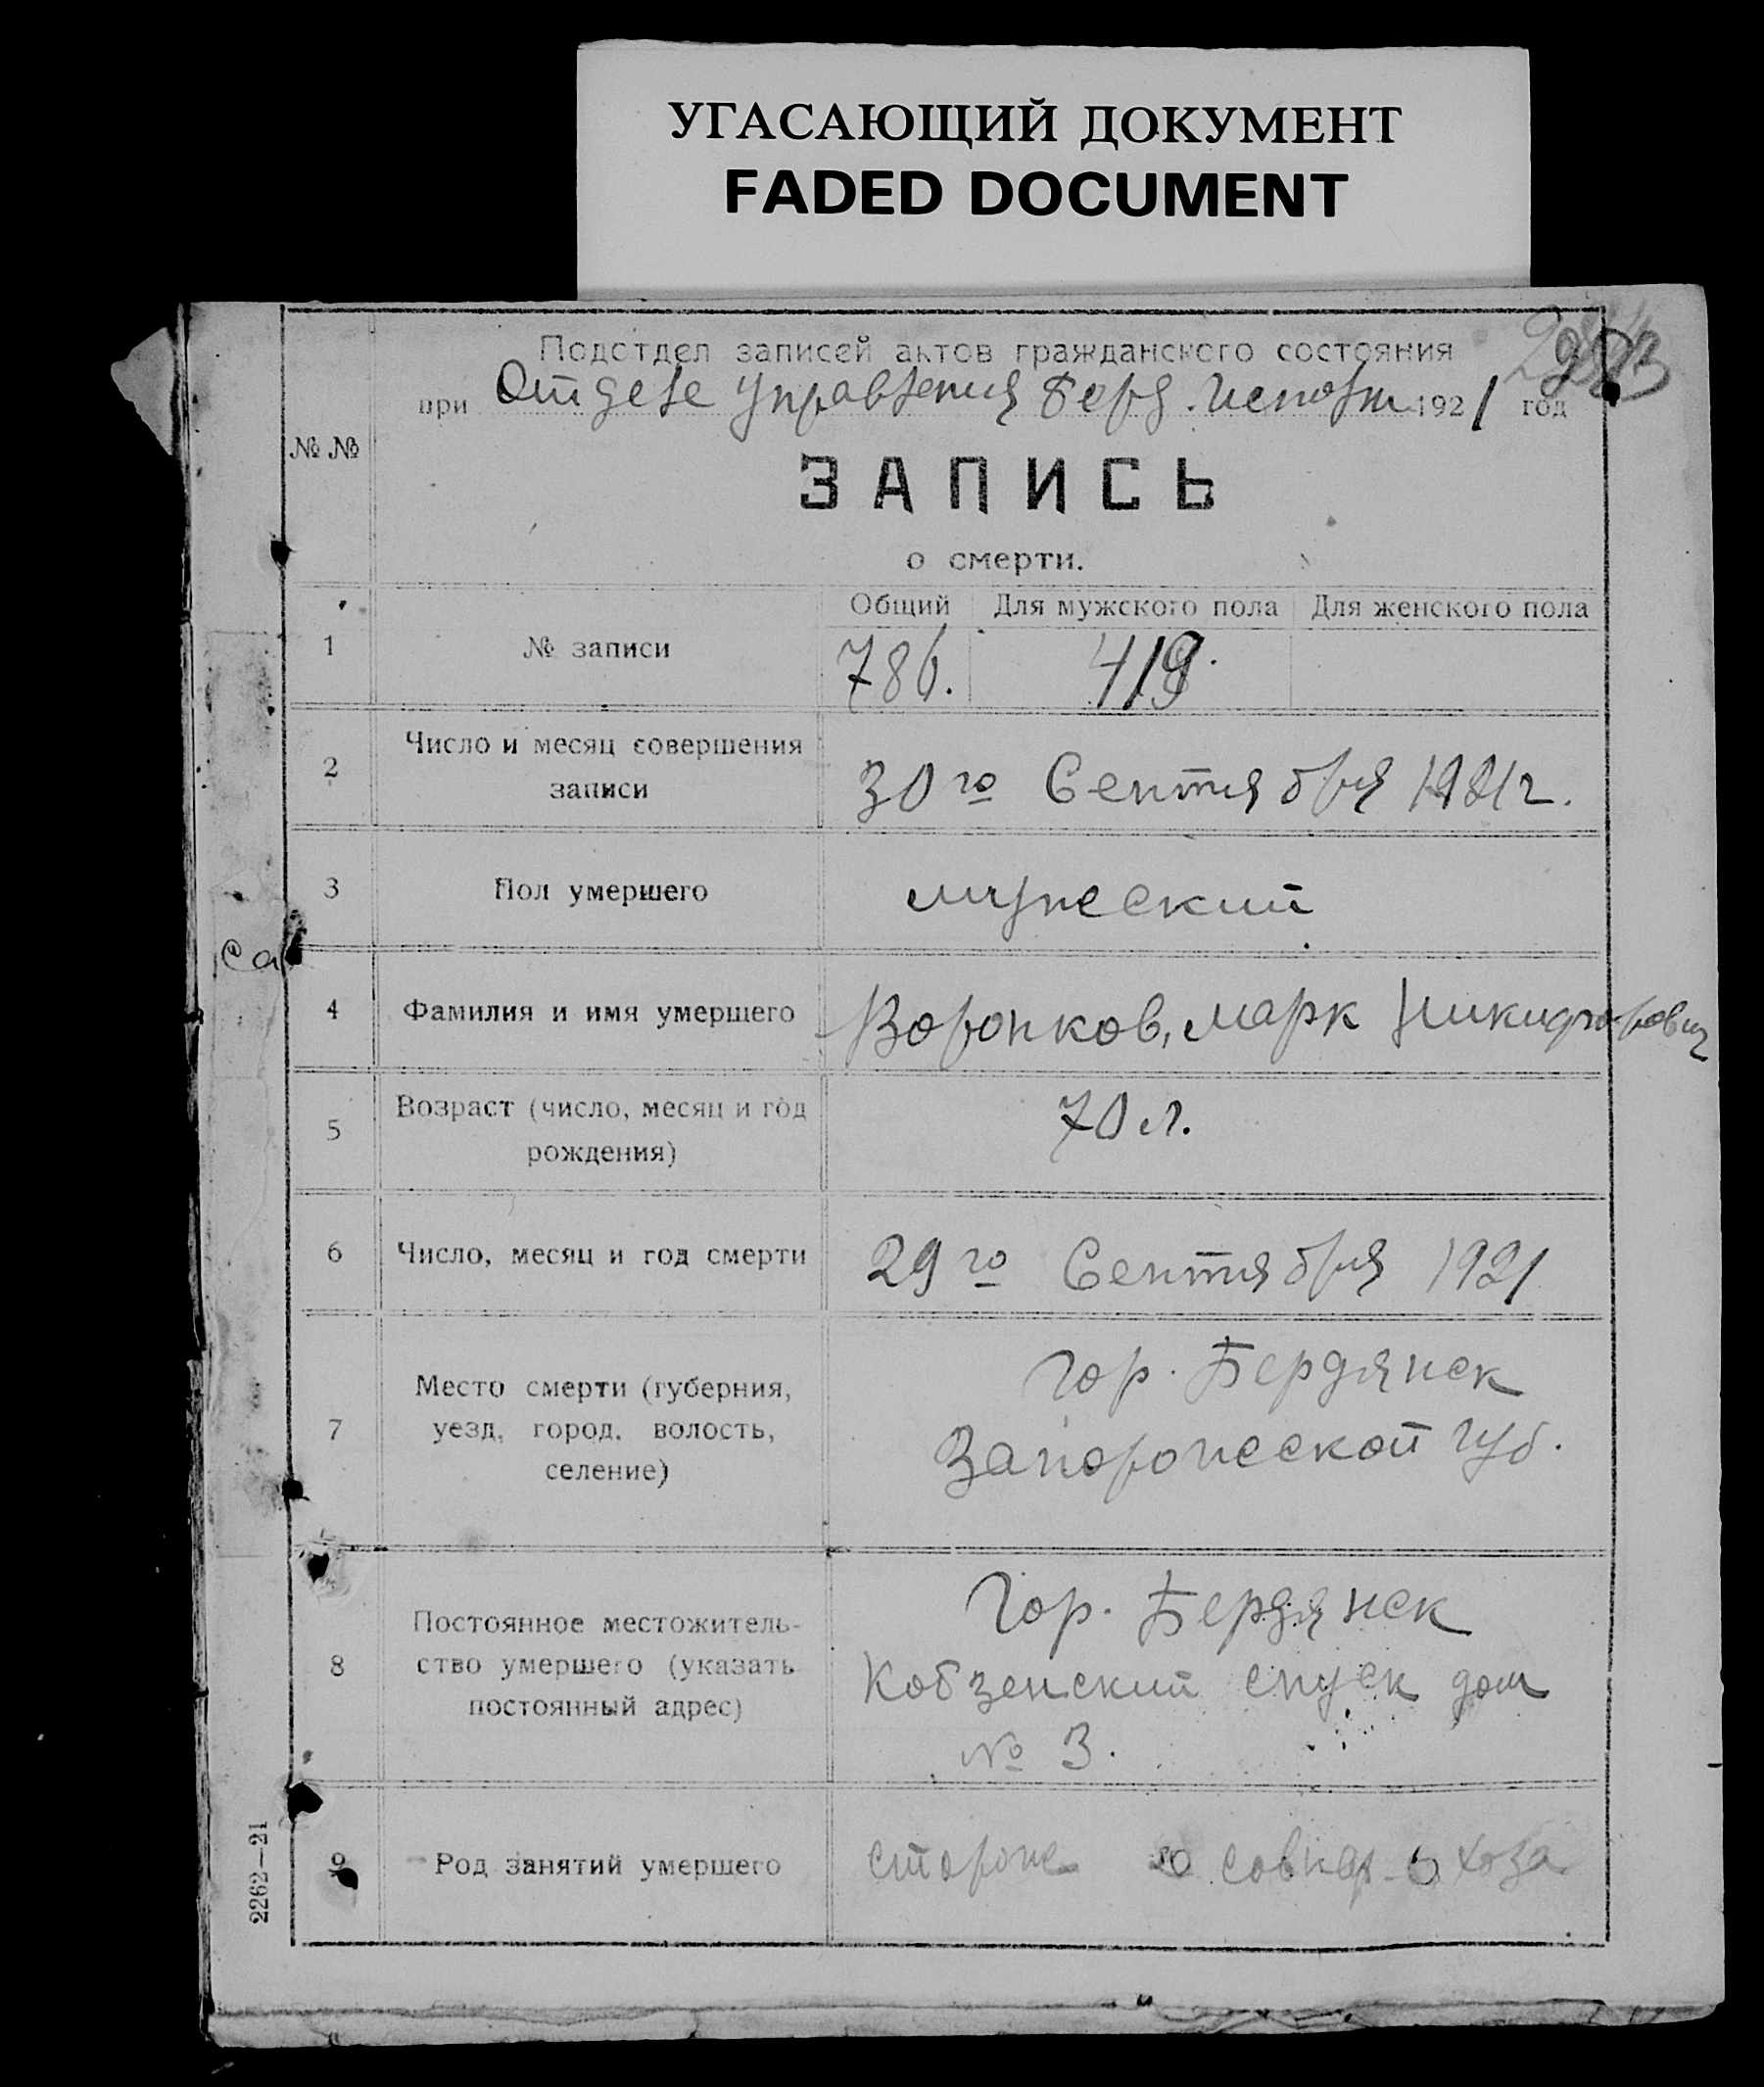 УГАСАЮЩИЙ ДОКУМЕНТ
FADED DOCUMENT
Подотдел записей актов гражданского состояния
при Отделе Управления Берд. Исполк 1921 год
№ №
ЗАПИСЬ
о смерти.
Общий Для мужского пола Для женского пола
1 № записи 786. 419.
2 Число и месяц совершения
записи
30го Сентября 1921 г.
3 Пол умершего мужеский
са
4 Фамилия и имя умершего Воронков, Марк Никифорович
5 Возраст (число, месяц и год
рождения)
70 л.
6 Число, месяц и год смерти 29го Сентября 1921
7 Место смерти (губерния,
уезд, город, волость,
селение)
Гор. Бердянск
Запорожской губ.
8 Постоянное местожитель-
ство умершего (указать
постоянный адрес)
Гор. Бердянск
Кобзенский спуск дом
№ 3.
9 Род занятий умершего сторож хоза
2262—21